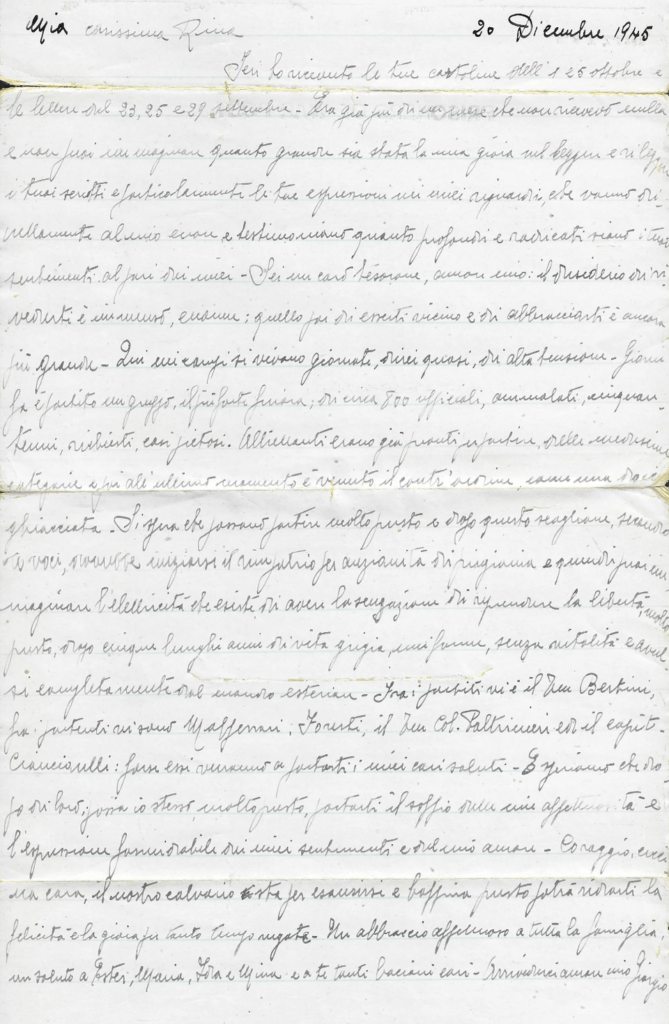 Mia carissima Rina 20 Dicembre 1945
Ieri ho ricevuto le tue cartoline dell'1 25 ottobre e
le lettere del 23, 25 e 29 settembre - Era già più di un mese che non ricevevo nulla
e non puoi immaginare quanto grande sia stata la mia gioia nel leggere e rileggere
i tuoi scritti e particolarmente le tue espressioni nei miei riguardi, che vanno di-
rettamente al mio cuore e testimoniano quanto profondi e radicati siano i tuoi
sentimenti al pari dei miei - Sei un caro tesorone, amor mio: il desiderio di ri-
vederti è immenso, enorme; quello poi di esserti vicino e di abbracciarti è ancora
più grande - Qui nei campi si vivono giornate, direi quasi, di alta tensione - Giorni
fa è partito un gruppo, il più forte finora, di circa 800 ufficiali, ammalati, cinquan-
tenni, richiesti, casi pietosi. Altrettanti erano già pronti a partire, delle medesime
categorie e poi all'ultimo momento è venuto il contr'ordine, come una doccia
ghiacciata - Si spera che possano partire molto presto e dopo questo scaglione, secondo
le voci, dovrebbe iniziarsi il rimpatrio per anzianità di prigionia e quindi puoi im-
maginare l'elettricità che esiste di aver la sensazione di riprendere la libertà, molto
presto, dopo cinque lunghi anni di vita grigia, uniforme, senza vitalità e avul-
si completamente dal mondo esteriore - Fra i partiti vi è il Ten Bertini,
fra i partenti vi sono Malferrari, Foresti, il Ten Col. Paltrinieri ed il capit-
Cranciarulli: forse essi verranno a portarti i miei cari saluti - E speriamo che do-
po di loro, possa io stesso, molto presto, portarti il soffio della mia affettuosità e
l'espressione formidabile dei miei sentimenti e del mio amore - Coraggio,
mia cara, il nostro calvario sta per esaurirsi e laffina presto potrà ridarti la
felicità e la gioia per tanto tempo negate - Un abbraccio affettuoso a tutta la famiglia,
un saluto a Ester, Maria, Ida e Mina e a te tanti bacioni cari - Arrivederci amor mio Giorgio